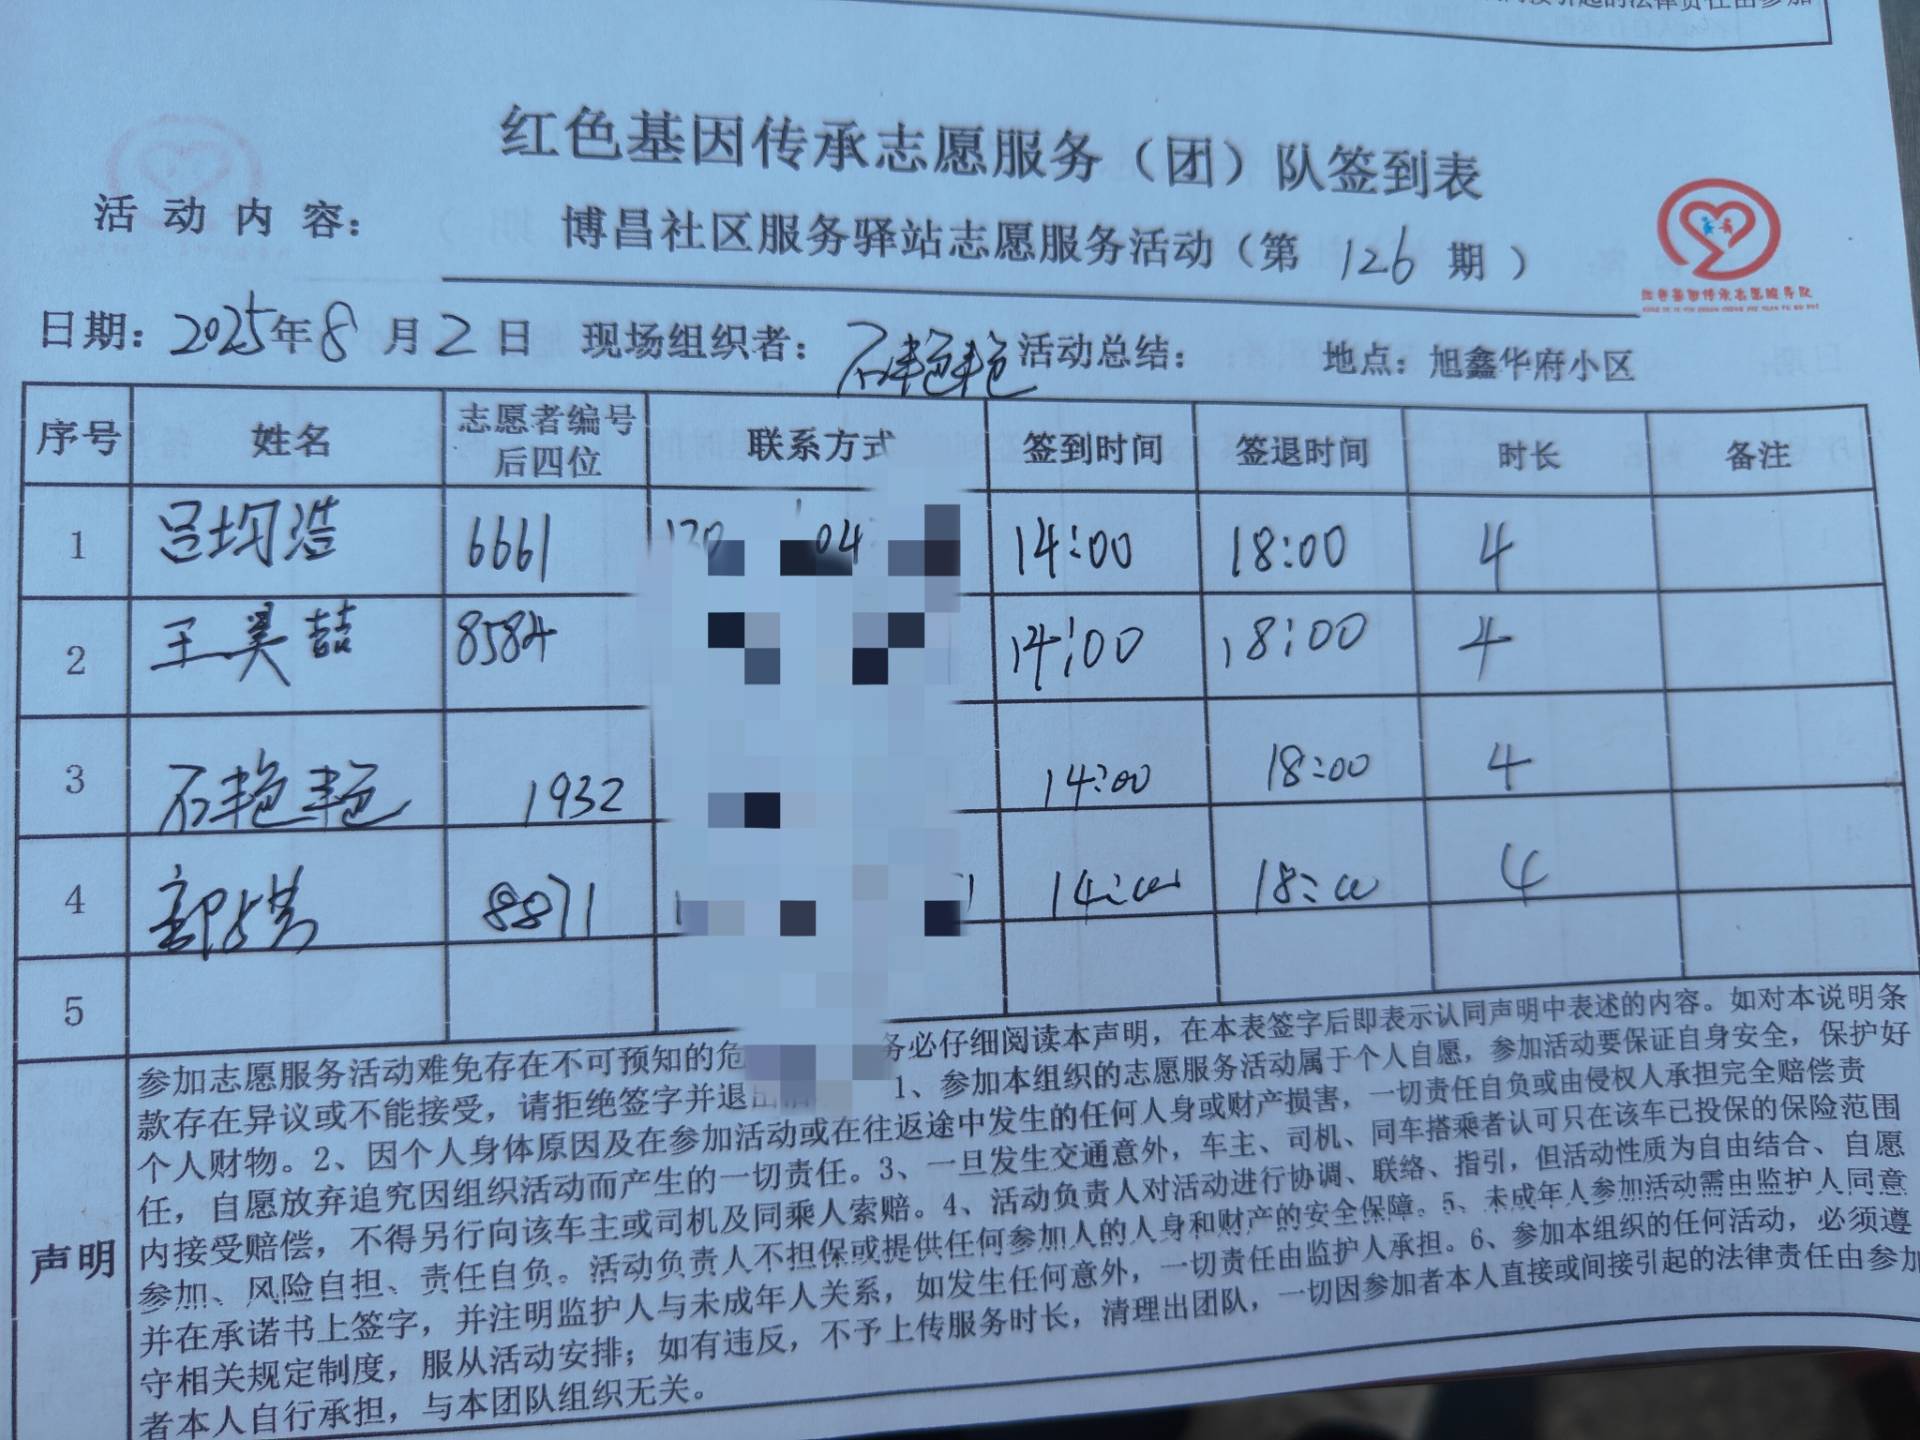 红色基因传承志愿服务（团）队签到表
活动内容： 博昌社区服务驿站志愿服务活动（第 126 期）
红色基因传承志愿服务队
日期：2025年8月2日 现场组织者：石艳艳 活动总结： 地点：旭鑫华府小区
序号 姓名 志愿者编号后四位 联系方式 签到时间 签退时间 时长 备注
1 吕均浩 6661 14:00 18:00 4
2 王美喆 8584 14:00 18:00 4
3 石艳艳 1932 14:00 18:00 4
4 8871 14:00 18:00 4
5
声明
参加志愿服务活动难免存在不可预知的危 务必仔细阅读本声明，在本表签字后即表示认同声明中表述的内容。如对本说明条
款存在异议或不能接受，请拒绝签字并退出 1、参加本组织的志愿服务活动属于个人自愿，参加活动要保证自身安全，保护好
个人财物。2、因个人身体原因及在参加活动或在往返途中发生的任何人身或财产损害，一切责任自负或由侵权人承担完全赔偿责
任，自愿放弃追究因组织活动而产生的一切责任。3、一旦发生交通意外，车主、司机、同车搭乘者认可只在该车已投保的保险范围
内接受赔偿，不得另行向该车主或司机及同乘人索赔。4、活动负责人对活动进行协调、联络、指引，但活动性质为自由结合、自愿
参加、风险自担、责任自负。活动负责人不担保或提供任何参加人的人身和财产的安全保障。5、未成年人参加活动需由监护人同意
并在承诺书上签字，并注明监护人与未成年人关系，如发生任何意外，一切责任由监护人承担。6、参加本组织的任何活动，必须遵
守相关规定制度，服从活动安排；如有违反，不予上传服务时长，清理出团队，一切因参加者本人直接或间接引起的法律责任由参加
者本人自行承担，与本团队组织无关。